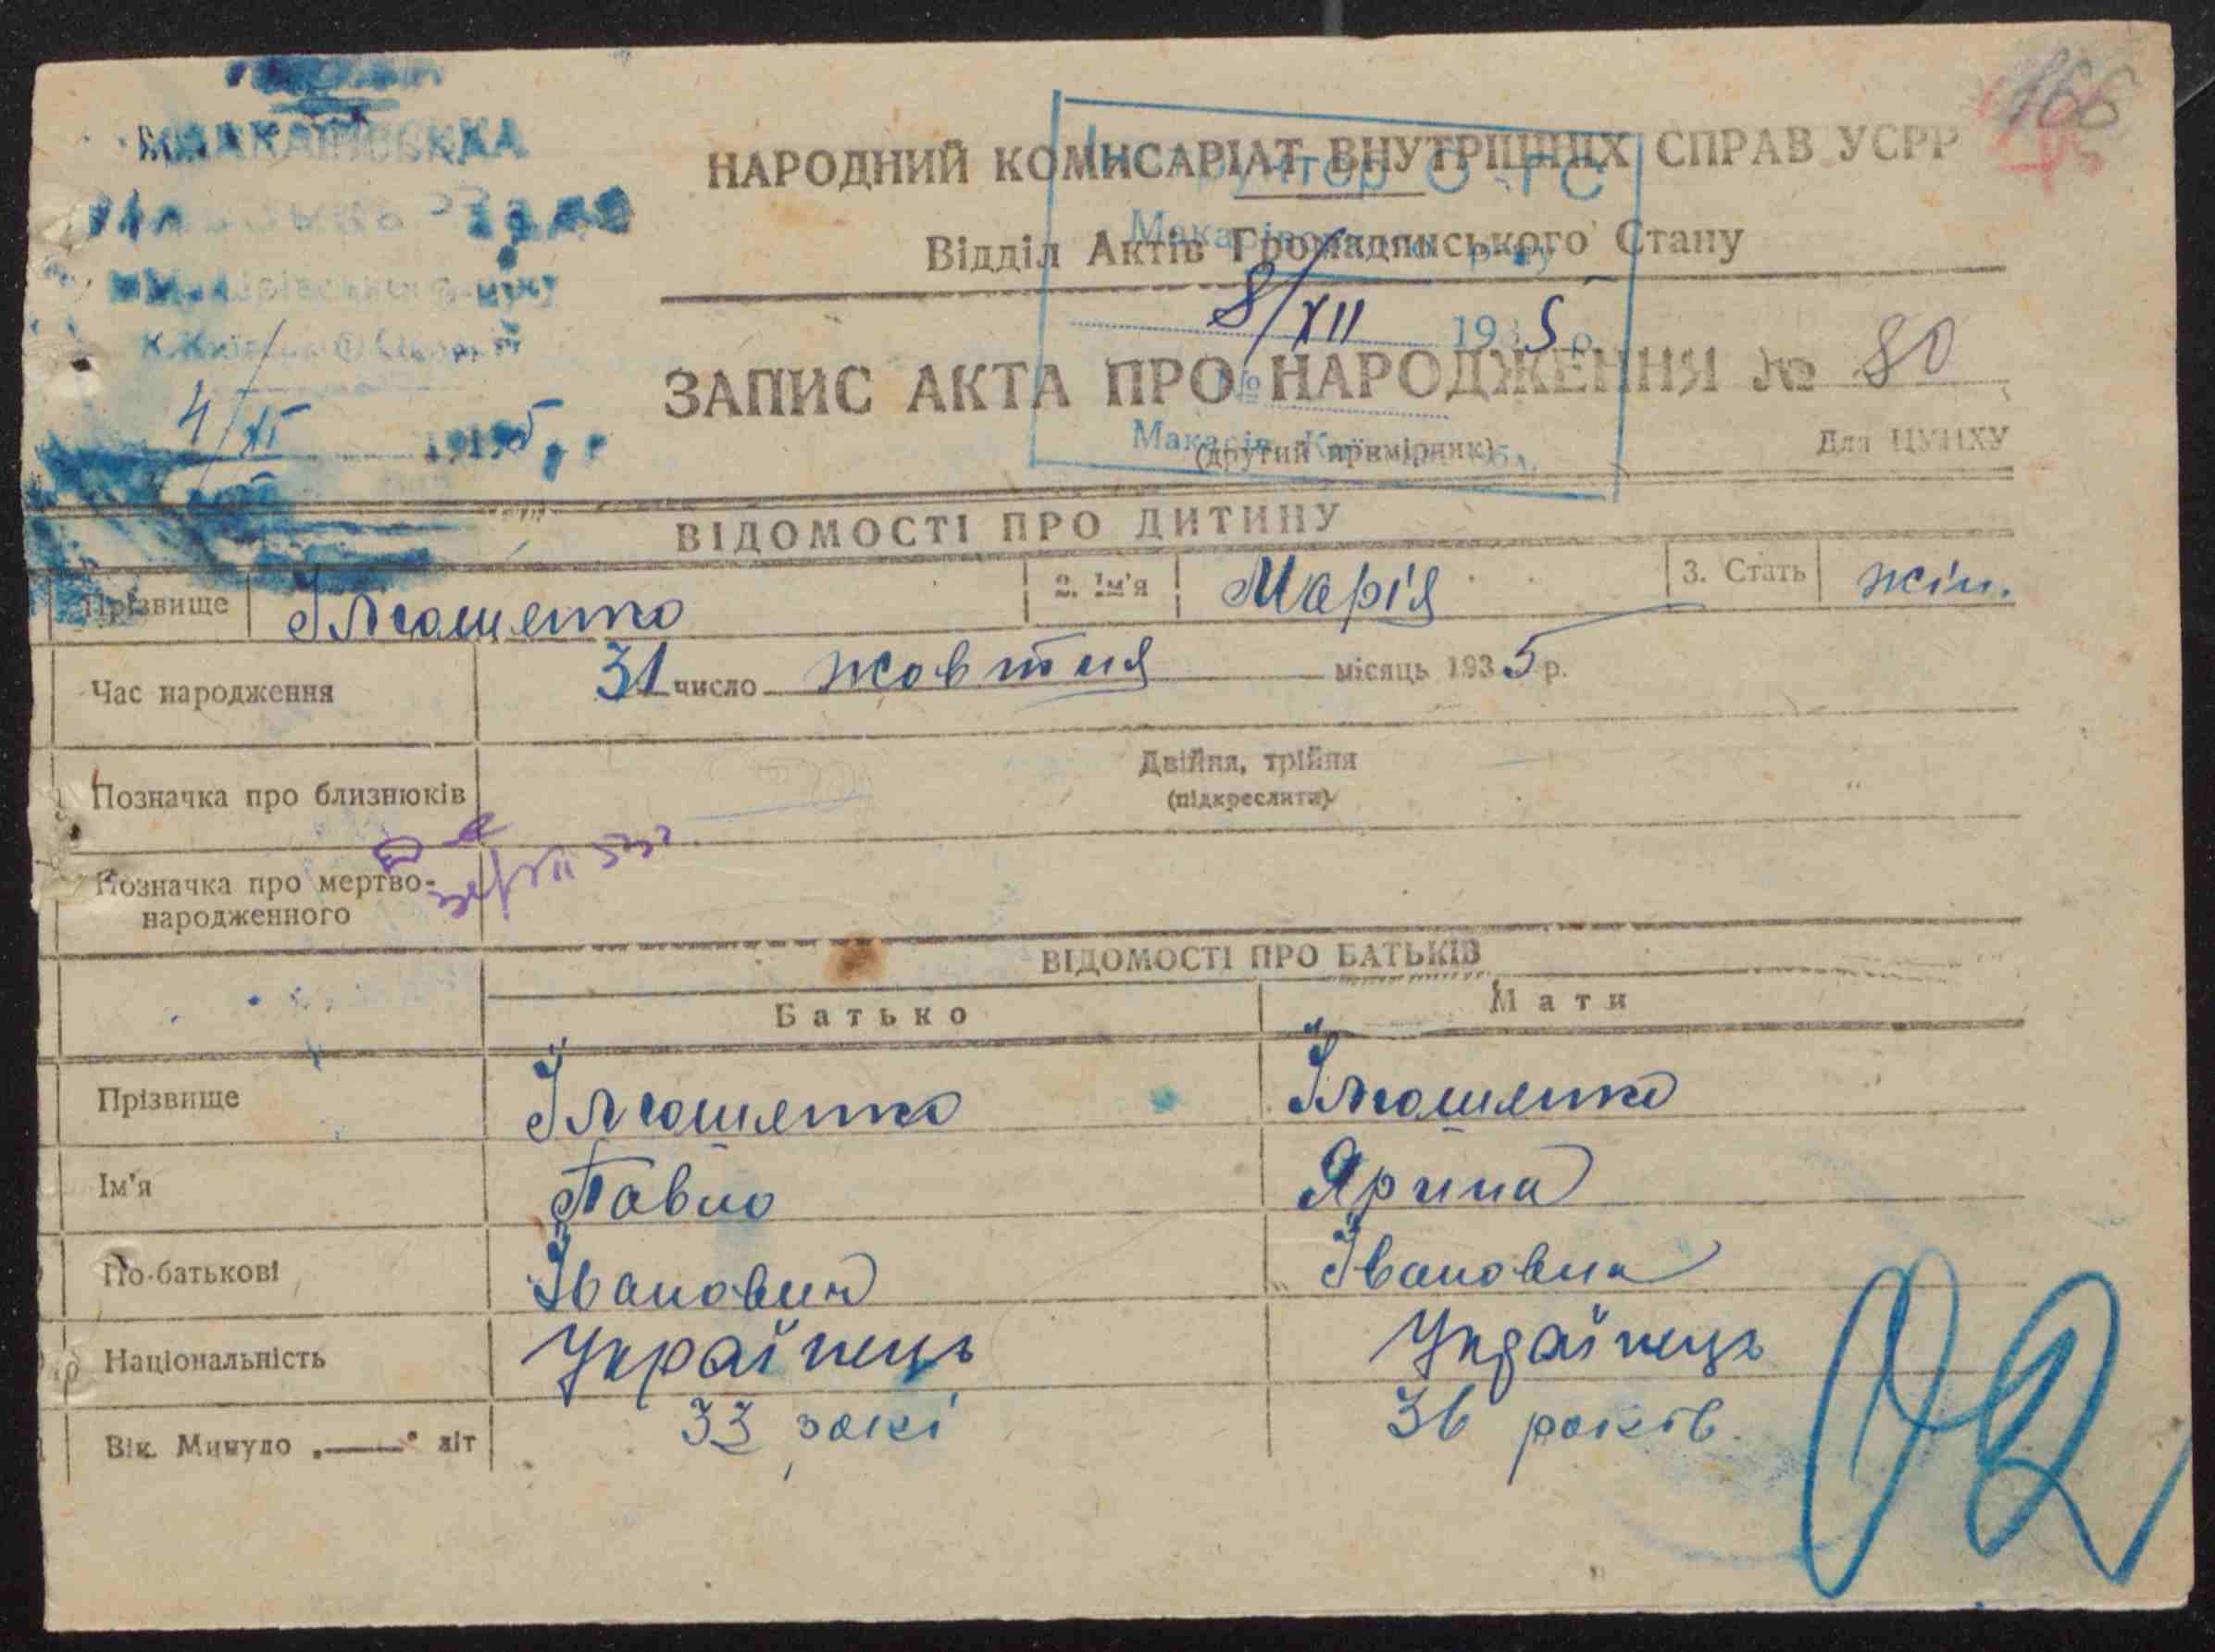 166
НАРОДНИЙ КОМИСАРІАТ ВНУТРІШНІХ СПРАВ УСРР
Відділ Актів Громадянського Стану
8/XII 1935 р.
ЗАПИС АКТА ПРО НАРОДЖЕННЯ № 80
4/XI 1935
(другий примірник)
Для ЦУНХУ
ВІДОМОСТІ ПРО ДИТИНУ
Прізвище Ілюшенко 2. Ім'я Марія 3. Стать жін.
Час народження 31 число жовтня місяць 1935 р.
Позначка про близнюків Двійня, трійня
(підкреслити)
Позначка про мертво-
народженного
ВІДОМОСТІ ПРО БАТЬКІВ
Батько Мати
Прізвище Їлюшенко Їлюшенко
Ім'я Павло Ярина
По-батькові Їванович Ївановна
Національність Українець Українець
Вік. Минуло „—“ літ 33 рокі 36 років.